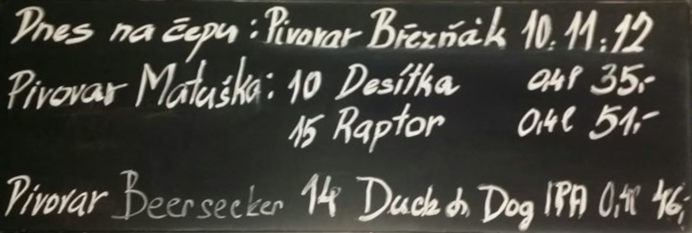 Dnes na čepu : Pivovar Březňák 10. 11. 12
Pivovar Matuška: 10 Desítka 0,4l 35,-
15 Raptor 0,4l 51,-
Pivovar Beersecker 14 Duck & Dog IPA 0,4l 46,-